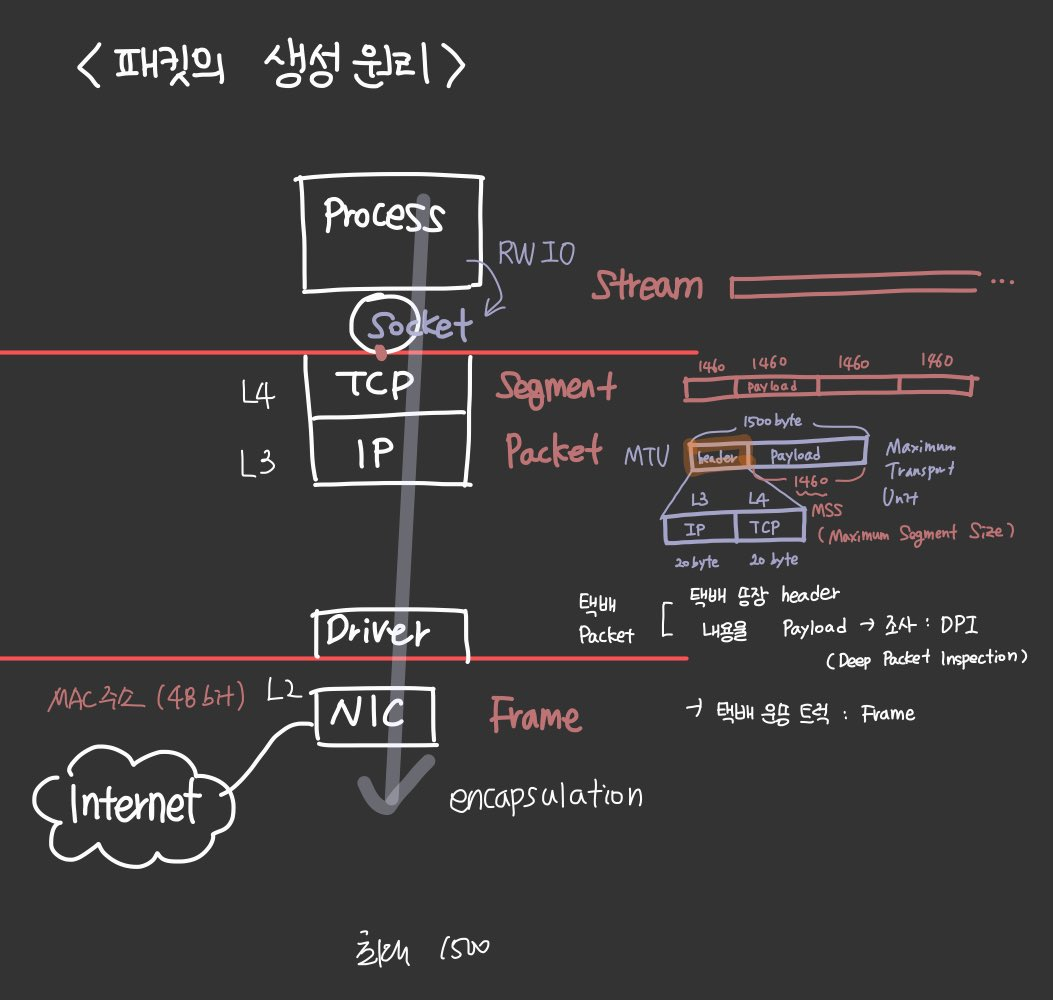 <패킷의 생성원리>
Process
RW IO
Stream ...
Socket
1460 1460 1460 1460
L4 TCP Segment Payload
1500 byte
L3 IP Packet MTU header Payload Maximum
Transport
Unit
1460
L3 L4 MSS
IP TCP (Maximum Segment Size)
20 byte 20 byte
택배 택배 송장 header
Packet 내용물 Payload → 조사 : DPI
(Deep Packet Inspection)
Driver
MAC주소 (48 bit) L2
NIC Frame → 택배 운송 트럭 : Frame
Internet
encapsulation
최대 1500